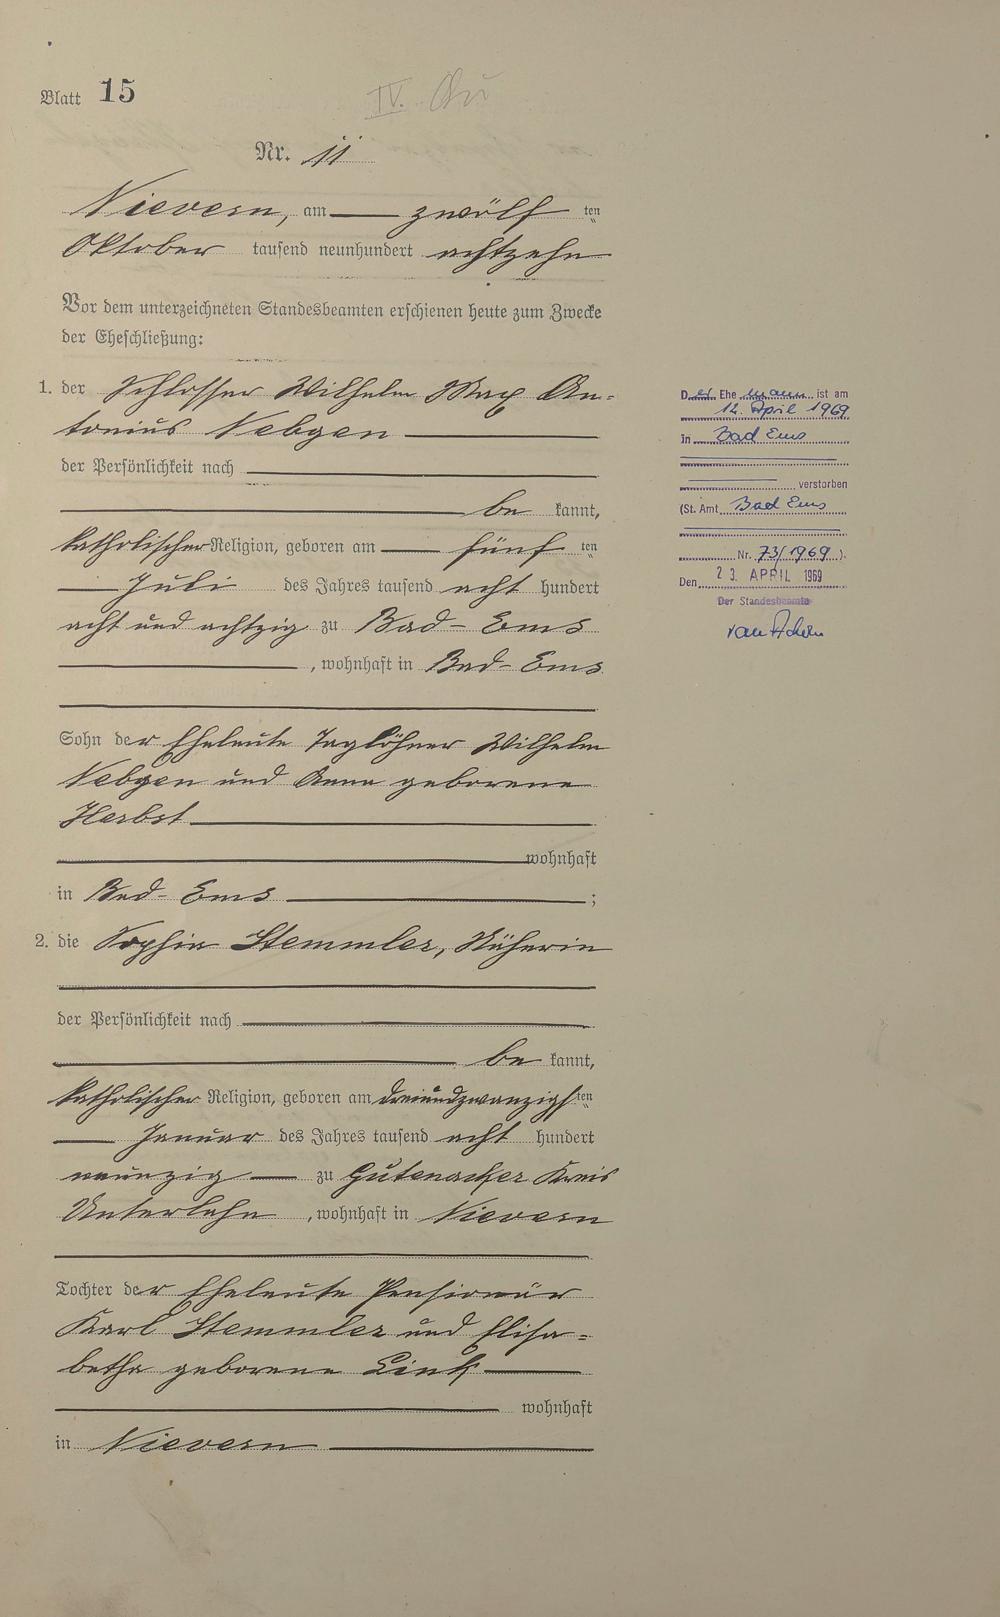 Blatt 15
IV.
Nr. 11
Nievern, am zwölf ten
Oktober tausend neunhundert achtzehn
Vor dem unterzeichneten Standesbeamten erschienen heute zum Zwecke
der Eheschließung:
1. der Schlosser Wilhelm Max An=
tonius Nebgen
der Persönlichkeit nach
be kannt,
katholischer Religion, geboren am fünf ten
Juli des Jahres tausend acht hundert
acht und achtzig zu Bad-Ems
, wohnhaft in Bad-Ems
Sohn der Eheleute Taglöhner Wilhelm
Nebgen und Anna geborene
Herbst
wohnhaft
in Bad-Ems ;
2. die Sophia Stemmler, Näherin
der Persönlichkeit nach
be kannt,
katholischer Religion, geboren am dreiundzwanzigsten
Januar des Jahres tausend acht hundert
neunzig zu Gutenacker Kreis
Unterlahn , wohnhaft in Nievern
Tochter der Eheleute Pensionär
Karl Stemmler und Elisa=
betha geborene Link
wohnhaft
in Nievern
Der Ehemann ist am
12. April 1969
in Bad Ems
verstorben
(St. Amt Bad Ems
Nr. 73/1969 ).
Den 23. APRIL 1969
Der Standesbeamte